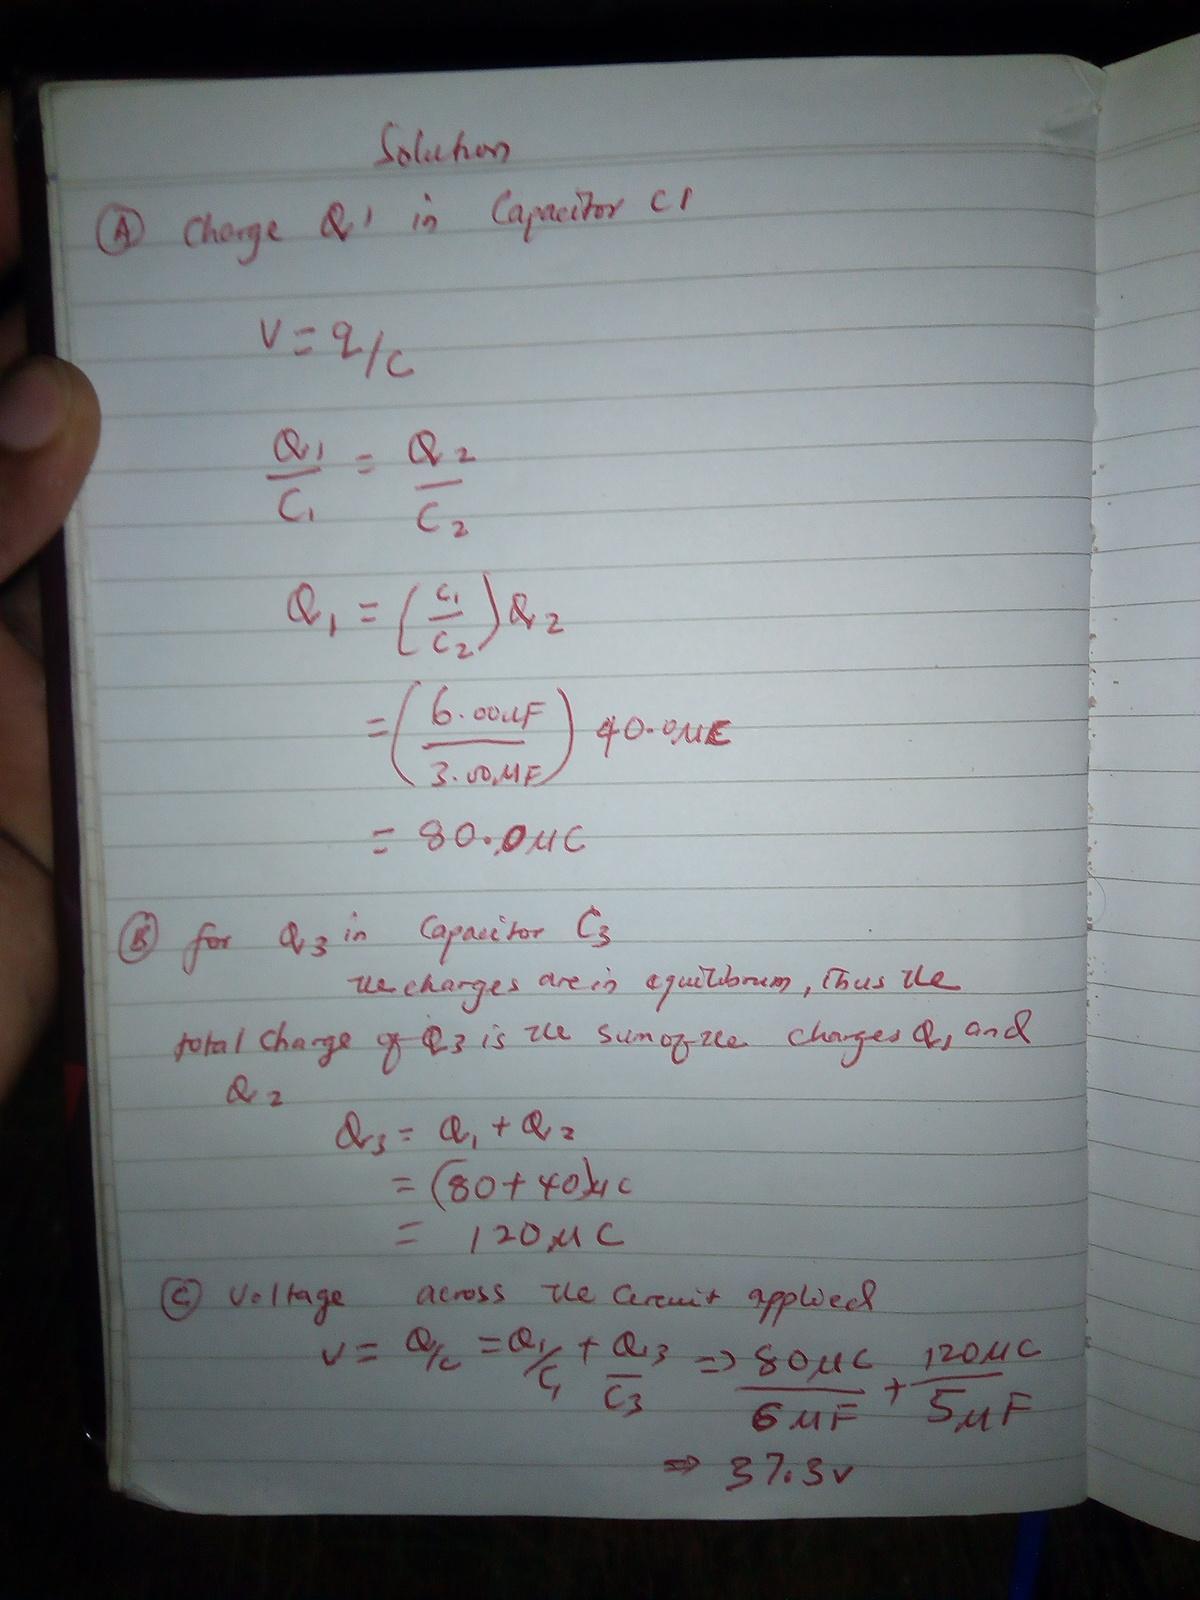 Solution
(A) Charge Q1 in Capacitor C1
V = q/c
Q1/C1 = Q2/C2
Q1 = (C1/C2) Q2
= (6.00μF/3.00μF) 40.0μC
= 80.0μC
(B) for Q3 in Capacitor C3
the charges are in equilibrum, Thus the
total Charge of Q3 is the sum of the charges Q1 and
Q2
Q3 = Q1 + Q2
= (80+40)μc
= 120μC
(C) Voltage across the Circuit applied
V = Q/c = Q1/C1 + Q3/C3 => 80μC/6μF + 120μC/5μF
=> 37.3v